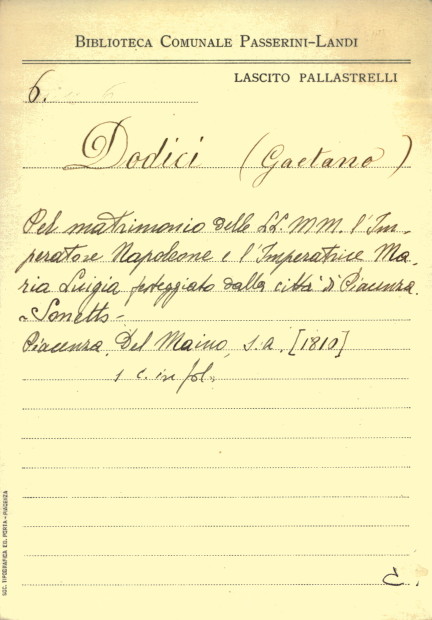 BIBLIOTECA COMUNALE PASSERINI-LANDI
LASCITO PALLASTRELLI
6.
Dodici (Gaetano)
Pel matrimonio delle LL. MM. l'Im-
peratore Napoleone e l'Imperatrice Ma-
ria Luigia festeggiato dalla città di Piacenza.
Sonetto -
Piacenza, Del Maino, s. a. [1810]
1 c. in fol.
SOC. TIPOGRAFICA ED. PORTA - PIACENZA